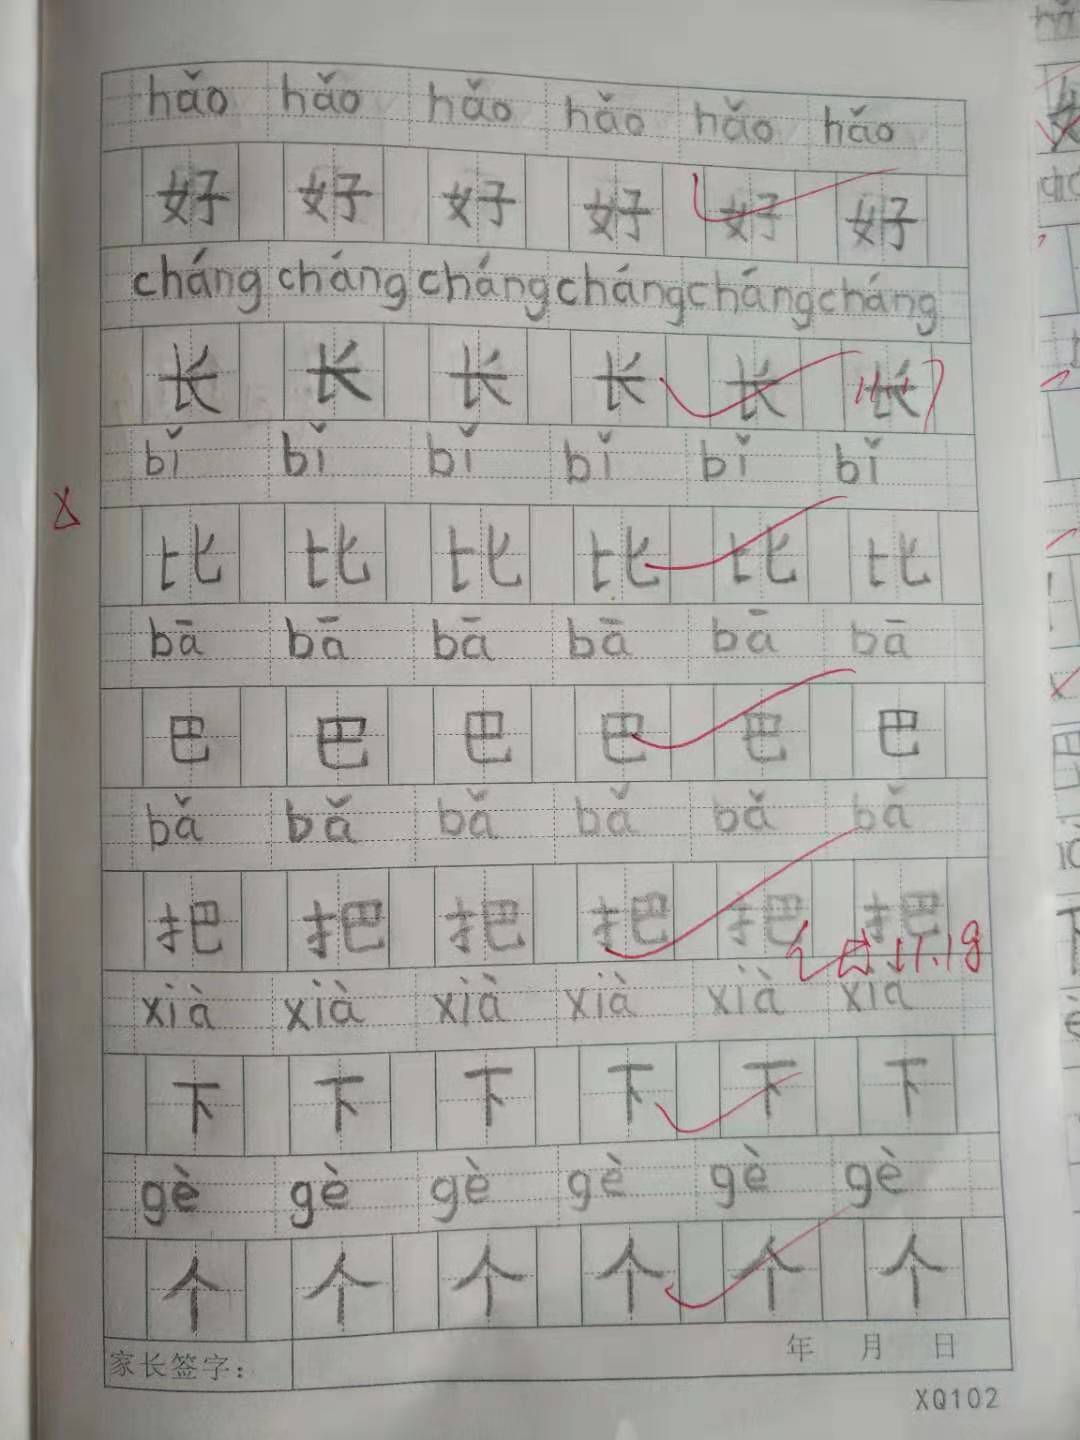 hǎo hǎo hǎo hǎo hǎo hǎo
好 好 好 好 好 好
cháng cháng cháng cháng cháng cháng
长 长 长 长 长 长
bǐ bǐ bǐ bǐ bǐ bǐ
比 比 比 比 比 比
bā bā bā bā bā bā
巴 巴 巴 巴 巴 巴
bǎ bǎ bǎ bǎ bǎ bǎ
把 把 把 把 把 把
xià xià xià xià xià xià
下 下 下 下 下 下
gè gè gè gè gè gè
个 个 个 个 个 个
家长签字： 年 月 日
XQ102